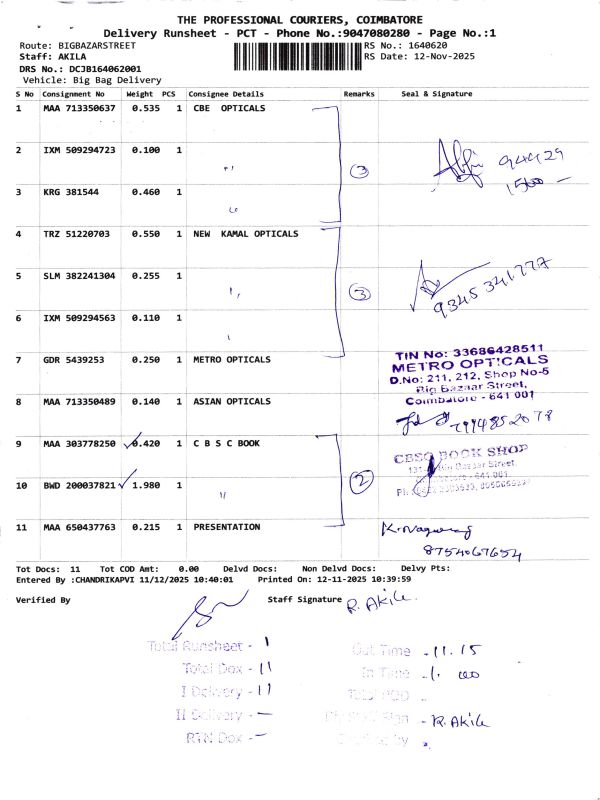 THE PROFESSIONAL COURIERS, COIMBATORE
Delivery Runsheet - PCT - Phone No.:9047080280 - Page No.:1
Route: BIGBAZARSTREET
RS No.: 1640620
Staff: AKILA
RS Date: 12-Nov-2025
DRS No.: DCJB164062001
Vehicle: Big Bag Delivery
S No Consignment No Weight PCS Consignee Details Remarks Seal & Signature
1 MAA 713350637 0.535 1 CBE OPTICALS
2 IXM 509294723 0.100 1 " 3 94429
1500 -
3 KRG 381544 0.460 1 "
4 TRZ 51220703 0.550 1 NEW KAMAL OPTICALS
5 SLM 382241304 0.255 1 " 3 9345341777
6 IXM 509294563 0.110 1
7 GDR 5439253 0.250 1 METRO OPTICALS
TIN No: 33686428511
METRO OPTICALS
D.No: 211, 212, Shop No-5
Big Bazaar Street,
Coimbatore - 641 001
8 MAA 713350489 0.140 1 ASIAN OPTICALS
9 MAA 303778250 ✓ 0.420 1 C B S C BOOK
CBSC BOOK SHOP
Big Bazaar Street,
- 641 001
10 BWD 200037821 ✓ 1.980 1 " 2
11 MAA 650437763 0.215 1 PRESENTATION
K. Nagaraj
8754067654
Tot Docs: 11 Tot COD Amt: 0.00 Delvd Docs: Non Delvd Docs: Delvy Pts:
Entered By :CHANDRIKAPVI 11/12/2025 10:40:01 Printed On: 12-11-2025 10:39:59
Verified By Staff Signature R. Akila
Total Runsheet - 1
Out Time - 11.15
Total Dox - 11
In Time - 1.00
I Delivery - 11
Total POD -
II Delivery - -
Sign - R. Akila
RTN Dox - -
by